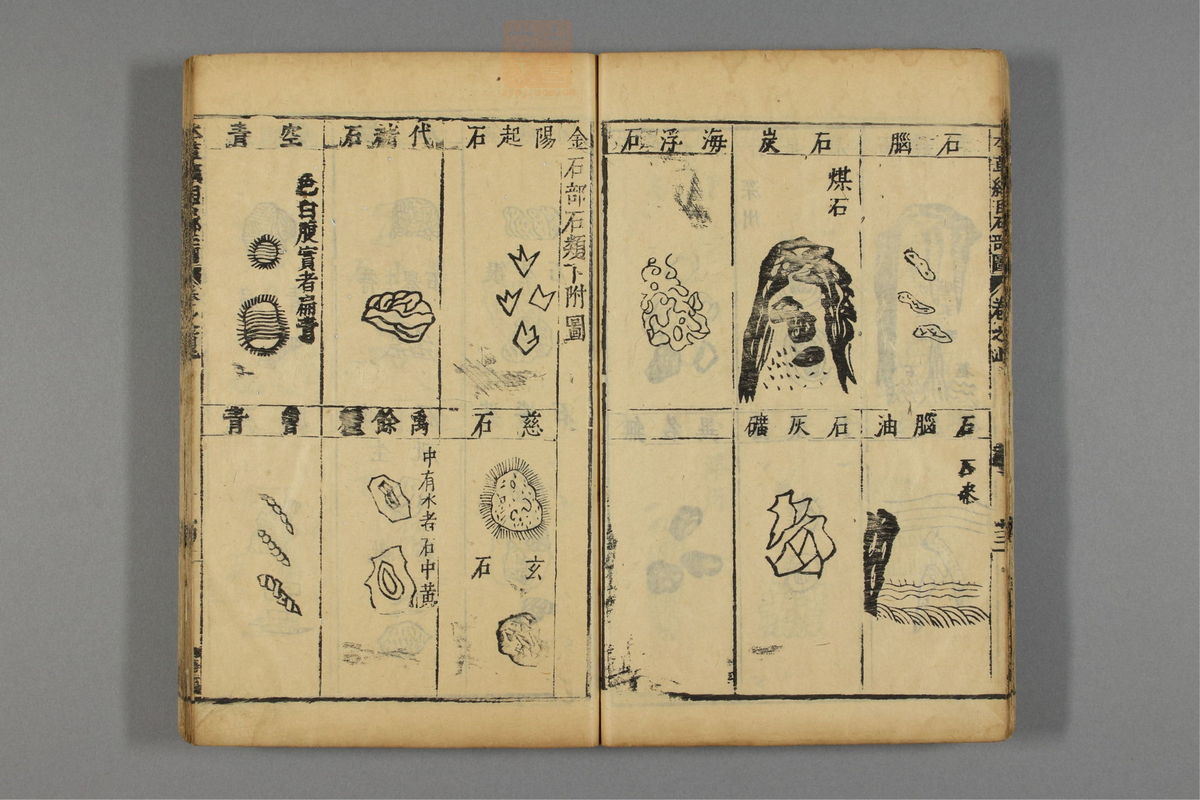 石腦
石炭
煤石
海浮石
石腦油
石灰礦
金石部石類下附圖
陽起石
代赭石
空青
色白腹實者扁青
慈石
玄石
禹餘糧
中有水者石中黃
曾青